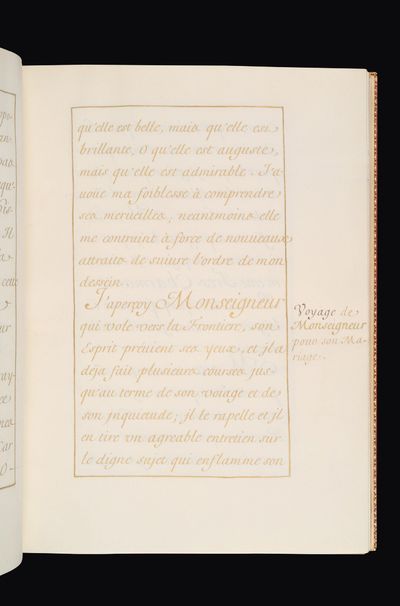 qu'elle est belle, mais qu'elle est
brillante, O qu'elle est auguste,
mais qu'elle est admirable. J'a
voüe ma foiblesse à comprendre
ses merueilles; neantmoins elle
me contraint à force de nouueaux
attraits de suiure l'ordre de mon
dessein.
J'aperçoy Monseigneur
qui vole vers la Frontiere, son
Esprit préuient ses yeux, et jl a
déja fait plusieurs courses jus
qu'au terme de son voiage et de
son jnquietude; jl le rapelle et jl
en tire vn agreable entretien sur
le digne sujet qui enflamme son
Voyage de
Monseigneur
pour son Ma-
riage.